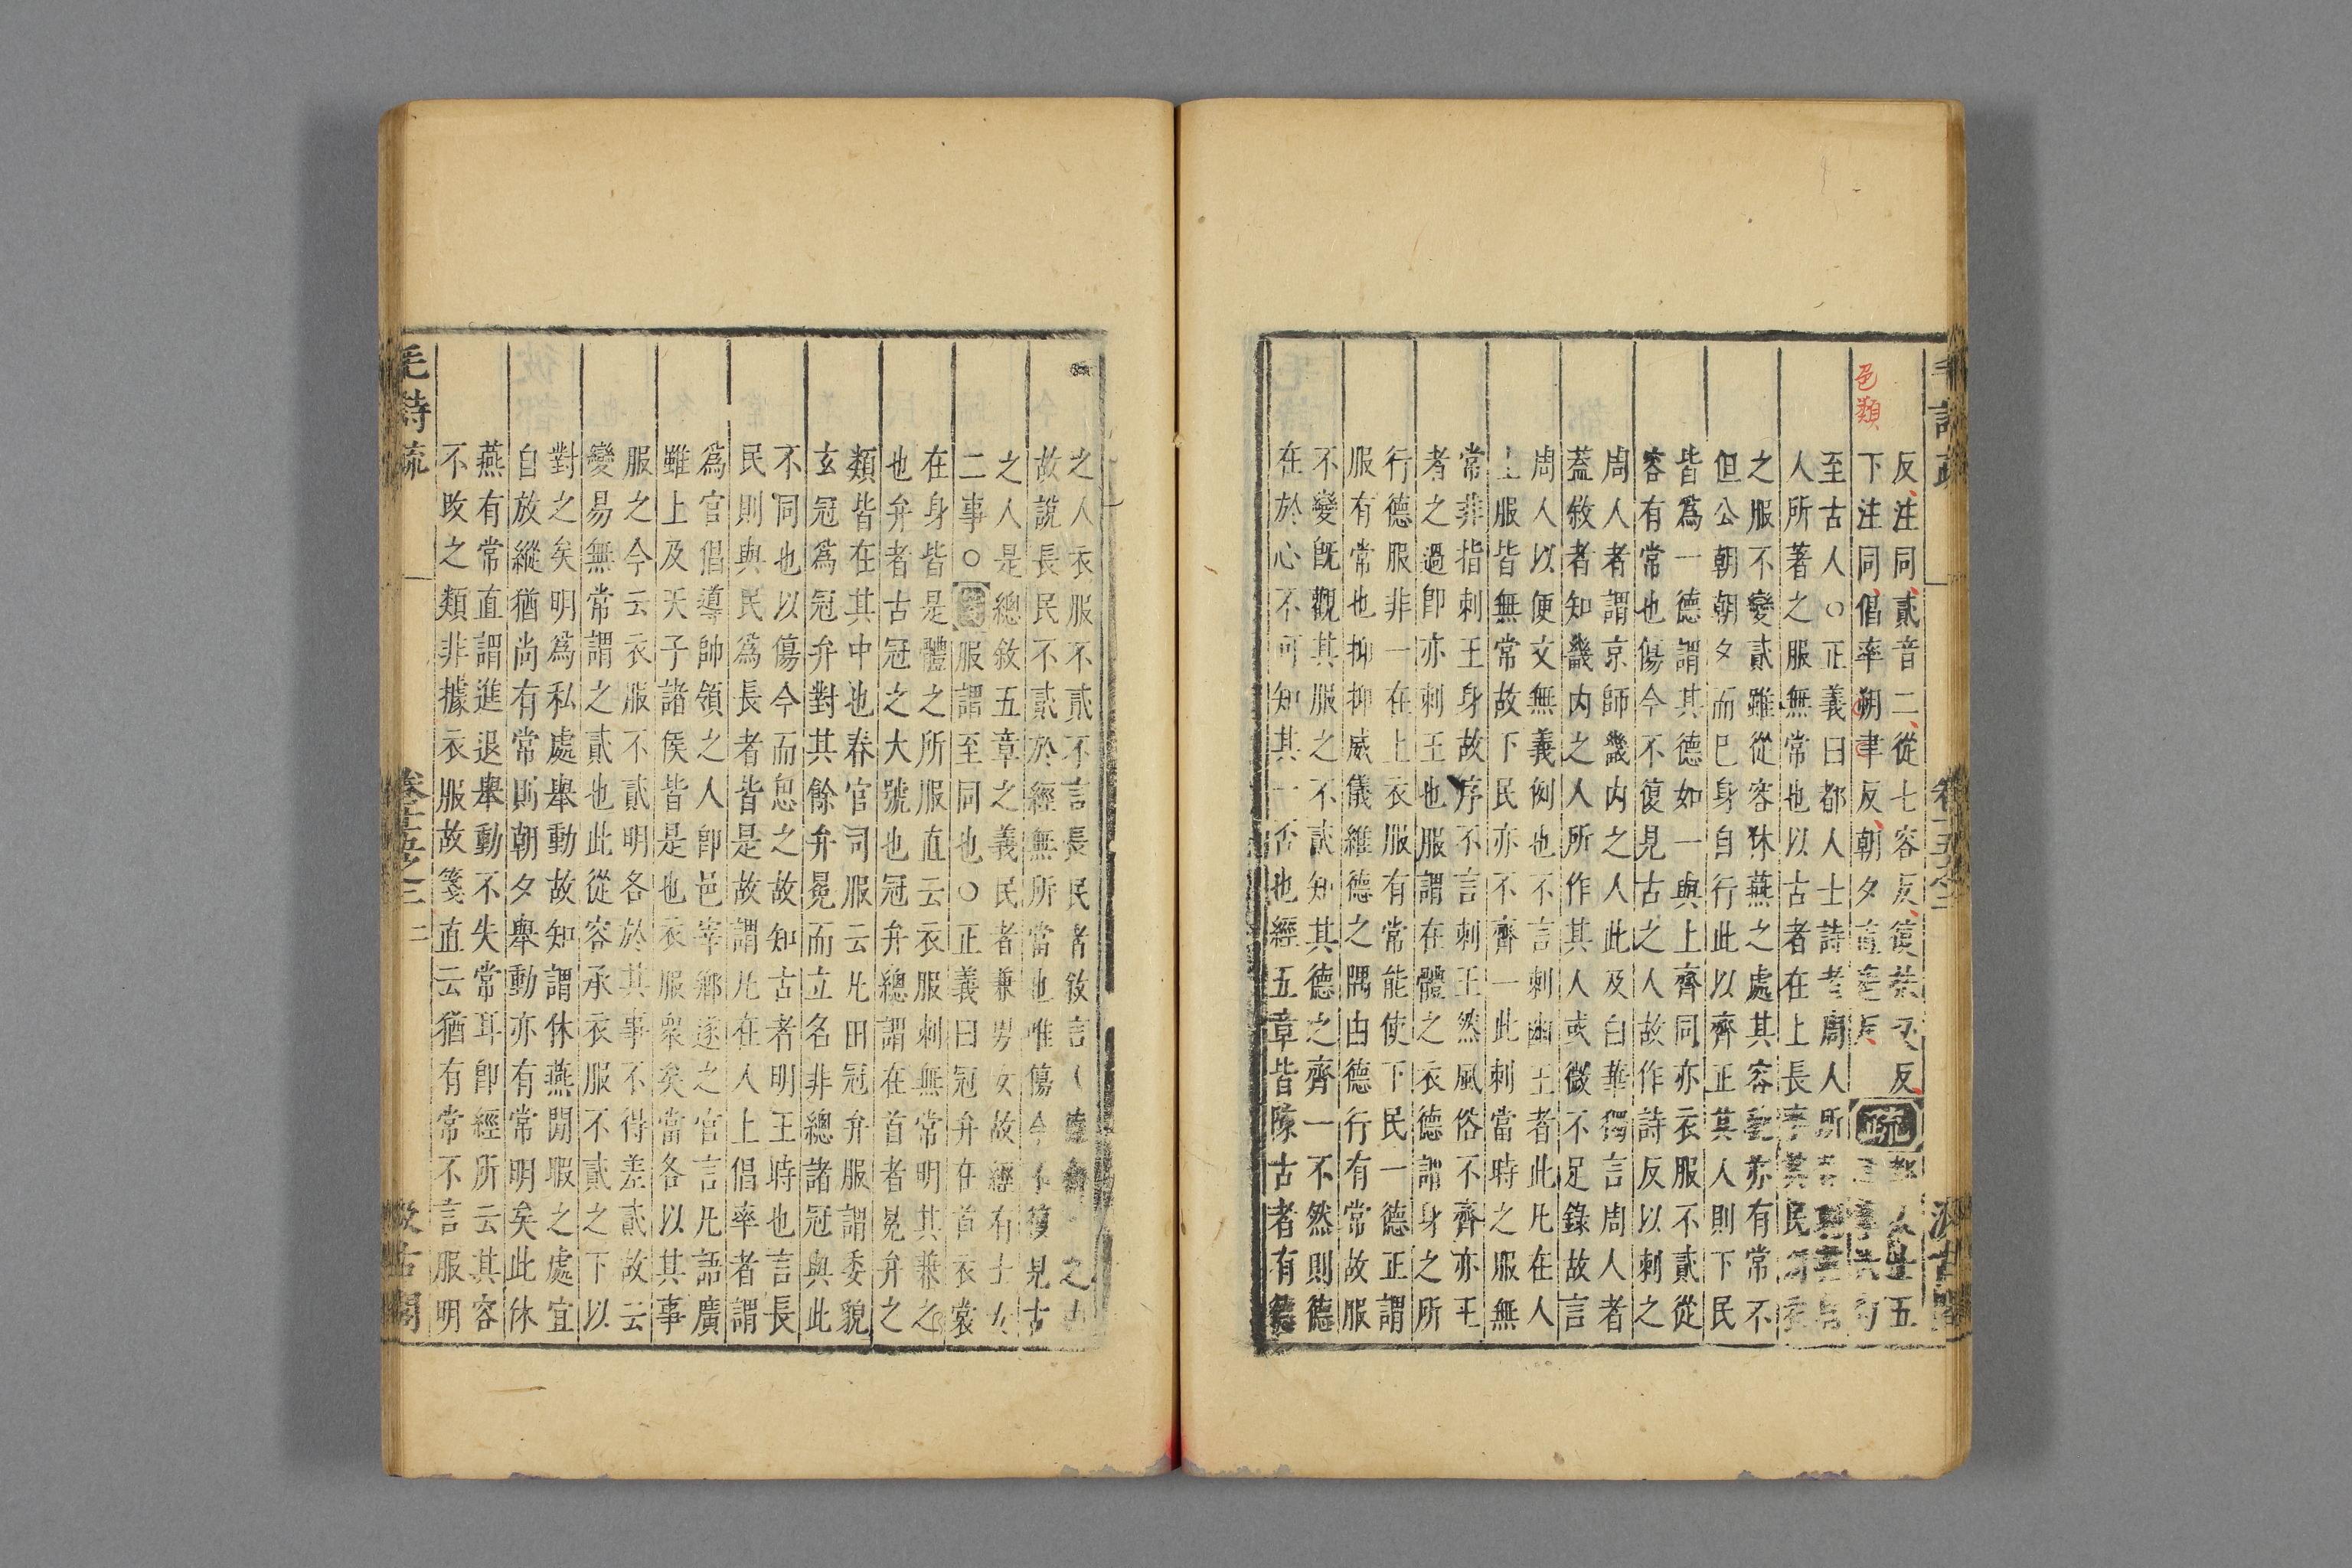 毛詩疏
卷十五之二
汲古閣
色類
反注同貳音二從七容反復扶又反疏都人士五
下注同倡率朔聿反朝夕直遙反
至古人○正義曰都人士詩者周人所
人所著之服無常也以古者在上長
之服不變貳雖從容休燕之處其容貌亦有常不
但公朝朝夕而已身自行此以齊正其人則下民
皆爲一德謂其德如一與上齊同亦衣服不貳從
容有常也傷今不復見古之人故作詩反以刺之
周人者謂京師畿内之人此及白華獨言周人者
蓋敘者知畿内之人所作其人或微不足錄故言
周人以便文無義例也不言刺幽王者此凡在人
上服皆無常故下民亦不齊一此刺當時之服無
常非指刺王身故序不言刺王然風俗不齊亦王
者之過即亦刺王也服謂在體之衣德謂身之所
行德服非一在上衣服有常能使下民一德正謂
服有常也抑抑威儀維德之隅由德行有常故服
不變旣觀其服之不貳知其德之齊一不然則德
在於心不可知其一否也經五章皆陳古者有德
之人衣服不貳不言長民者敘言
故說長民不貳於經無所當也唯傷今不復見古
之人是總敘五章之義民者兼男女故經有士女
二事○服謂至同也○正義曰冠弁在首衣裳
在身皆是體之所服直云衣服刺無常明其兼之
也弁者古冠之大號也冠弁總謂在首者冕弁之
類皆在其中也春官司服云凡田冠弁服謂委貌
玄冠爲冠弁對其餘弁冕而立名非總諸冠與此
不同也以傷今而思之故知古者明王時也言長
民則與民爲長者皆是故謂凡在人上倡率者謂
爲官倡導帥領之人即邑宰鄉遂之官言凡語廣
雖上及天子諸侯皆是也衣服衆矣當各以其事
服之今云衣服不貳明各於其事不得差貳故云
變易無常謂之貳也此從容承衣服不貳之下以
對之矣明爲私處舉動故知謂休燕閒暇之處宜
自放縱猶尚有常則朝夕舉動亦有常明矣此休
燕有常直謂進退舉動不失常耳即經所云其容
不改之類非據衣服故箋直云猶有常不言服明
毛詩疏
卷十五之二
二
汲古閣